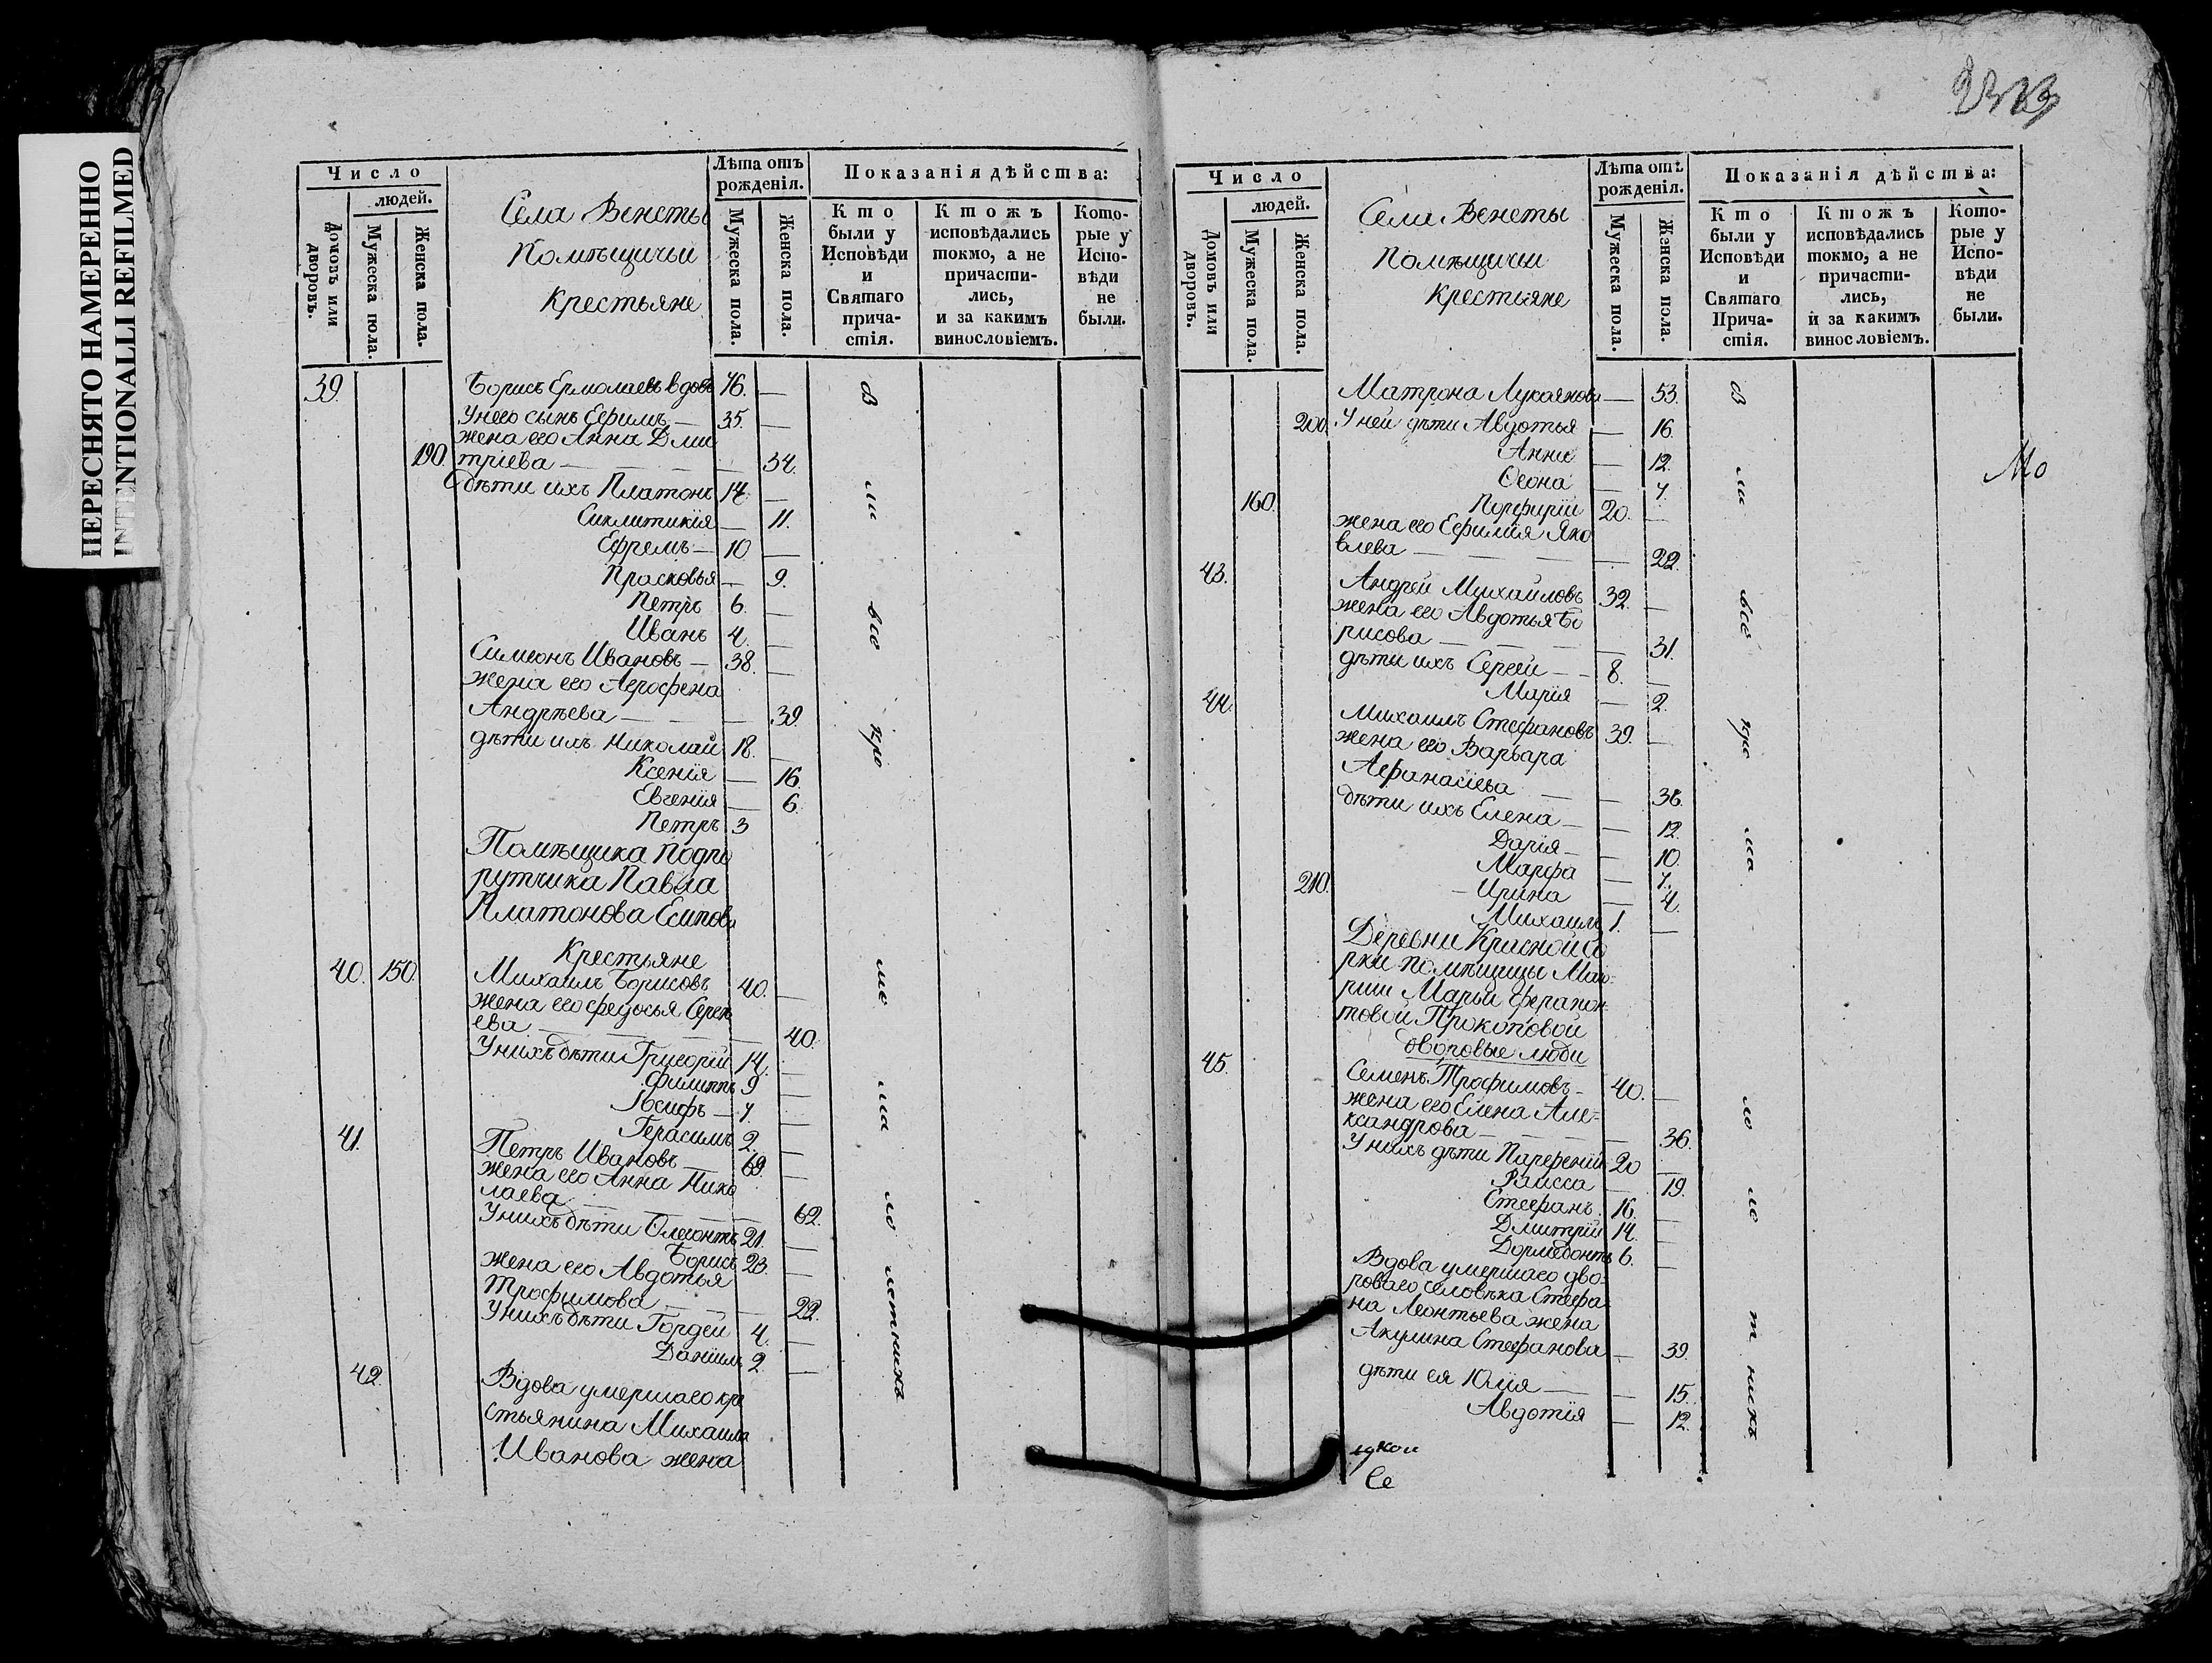 ПЕРЕСНЯТО НАМЕРЕННО
INTENTIONALLI REFILMED
Число
людей.
Домовъ или дворовъ.
Мужеска пола.
Женска пола.
Села Венеты
Помѣщичьи
Крестьяне
Лѣта отъ рожденія.
Мужеска пола.
Женска пола.
Показанія дѣйства:
Кто были у Исповѣди и Святаго причастія.
Ктожъ исповѣдались токмо, а не причастились, и за какимъ винословіемъ.
Которые у Исповѣди не были.
39. Борисъ Ермолаевъ вдовъ 76. —
У него сынъ Ефимъ — 35. —
жена его Анна Дми
190. тріева — — 34.
дѣти ихъ Платонъ 14. —
Сиклитикія — 11.
Ефремъ — 10 —
Прасковья — 9.
Петръ 6. —
Иванъ 4. —
Симеонъ Ивановъ — 38. —
жена его Агрофена
Андрѣева — — 39.
дѣти ихъ Николай 18. —
Ксенія — 16.
Евгенія — 6.
Петръ 3
Помѣщика Подпо
рутчика Павла
Платонова Есипова
Крестьяне
40. 150. Михаилъ Борисовъ 40. —
жена его Федосья Сергѣ
ева — — 40.
У нихъ дѣти Григорій 14. —
Филиппъ 9 —
Іосифъ — 7. —
Герасимъ 2. —
41. Петръ Ивановъ — 69. —
жена его Анна Нико
лаева — — 62.
У нихъ дѣти Леонтъ 21. —
Борисъ 23. —
жена его Авдотья
Трофимова — — 22.
У нихъ дѣти Гордей 4. —
Даніилъ 2. —
42. Вдова умершаго кре
стьянина Михаила
Иванова жена
Число
людей.
Домовъ или дворовъ.
Мужеска пола.
Женска пола.
Села Венеты
Помѣщичьи
Крестьяне
Лѣта отъ рожденія.
Мужеска пола.
Женска пола.
Показанія дѣйства:
Кто были у Исповѣди и Святаго Причастія.
Ктожъ исповѣдались токмо, а не причастились, и за какимъ винословіемъ.
Которые у Исповѣди не были.
Матрона Лукоянова — 53.
200. У ней дѣти Авдотья — 16.
Анна — 12.
Ѳеона — 7.
160. Порфирій 20. —
жена его Ефимія Яко
влева — — 22.
43. Андрей Михайловъ 32. —
жена его Авдотья Бо
рисова — — 31.
дѣти ихъ Сергей — 8. —
Марія — 2.
44. Михаилъ Стефановъ 39. —
жена его Варвара
Афанасіева — — 36.
дѣти ихъ Елена — — 12.
Дарія — — 10.
Марфа — 7.
210. Ирина — 4.
Михаилъ 1. —
Деревни Красной Го
рки помѣщицы Маіо
рши Марьи Ферапон
товой Прокоповой
дворовые люди
45. Семенъ Трофимовъ — 40. —
жена его Елена Але=
ксандрова — — 36.
У нихъ дѣти Парфеній 20 —
Раисса — 19.
Стефанъ 16. —
Дмитрій 14. —
Дормедонтъ 6. —
Вдова умершаго дво
роваго человѣка Стефа
на Леонтьева жена
Акулина Стефанова — 39.
дѣти ея Юлія — — 15.
Авдотія — 12.
Се